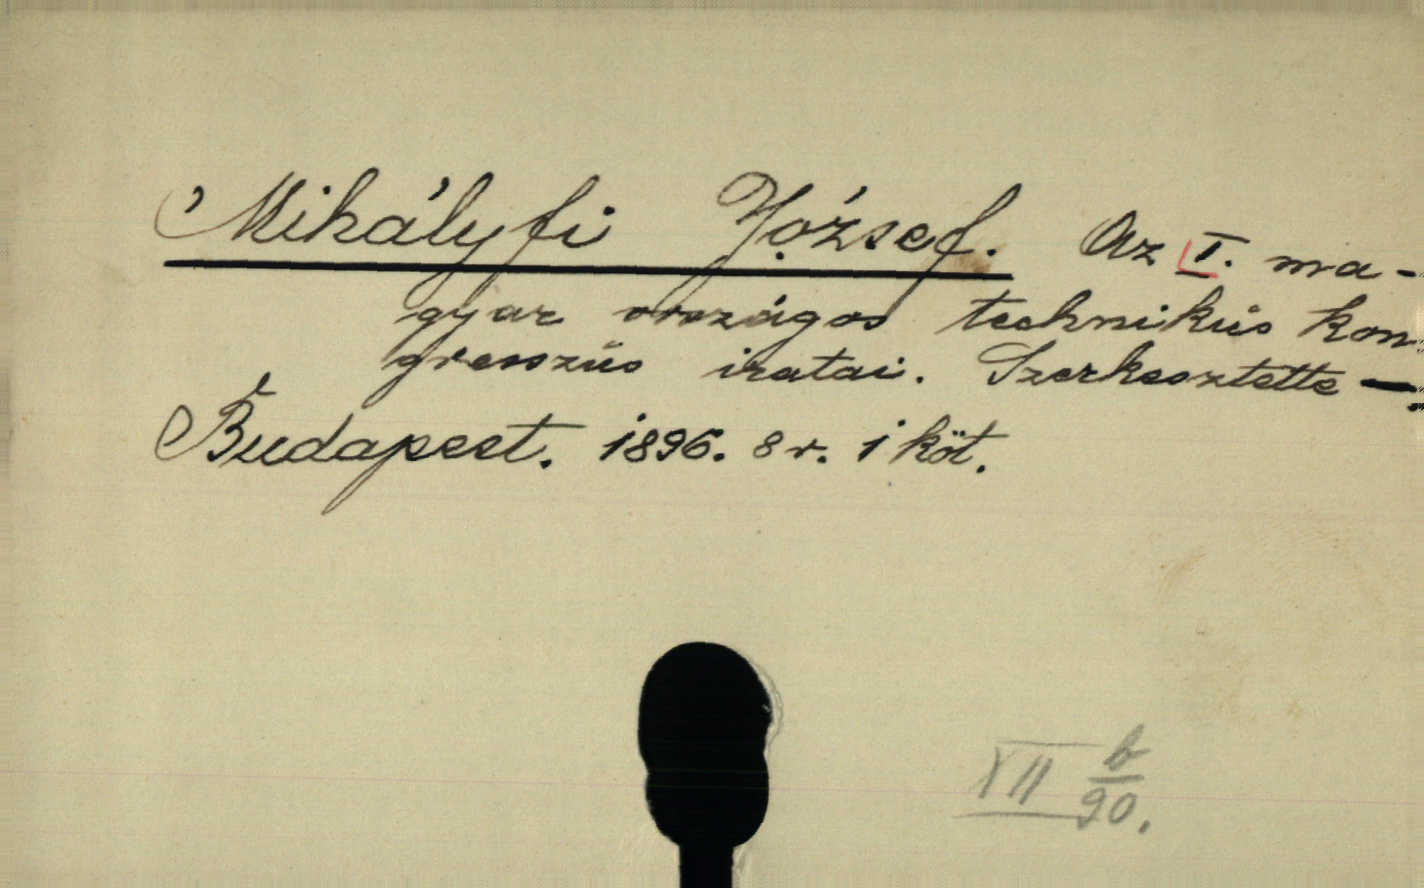 Mihályfi József. Az I. ma-
gyar országos technikús kon-
gresszús iratai. Szerkesztette —
Budapest. 1896. 8 r. 1 köt.
XII b/90.